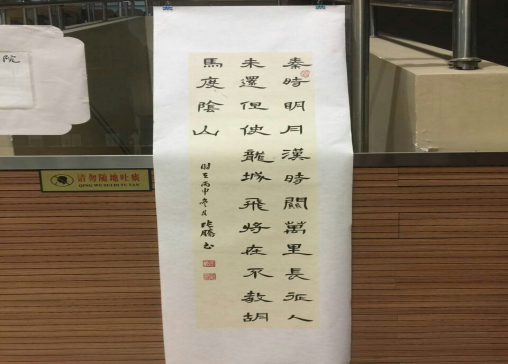 院
秦時明月漢時關萬里長征人
未還但使龍城飛將在不教胡
馬度陰山
时在丙申冬月
书
请勿随地吐痰
QING WU SUI DI TU TAN